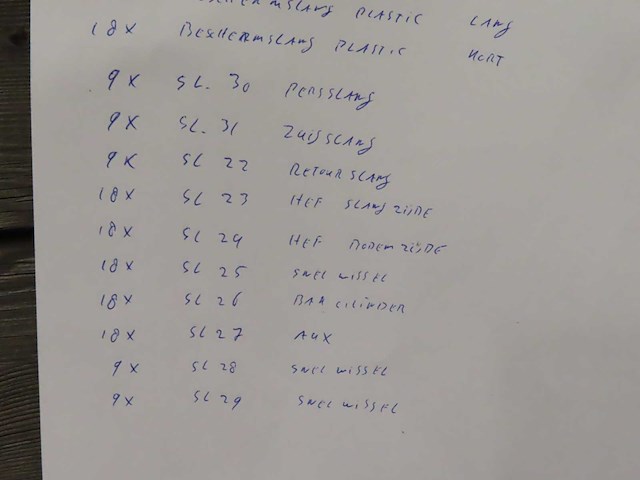 PLASTIC LANG
18X BESCHERMSLANG PLASTIC KORT
9X SL. 30 PERSSLANG
9X SL. 31 ZUIGSLANG
9X SL 22 RETOUR SLANG
18X SL 23 HEF SLANG ZIJDE
18X SL 24 HEF BODEM ZIJDE
18X SL 25 SNEL WISSEL
18X SL 26 BAK CILINDER
18X SL 27 AUX
9X SL 28 SNEL WISSEL
9X SL 29 SNEL WISSEL